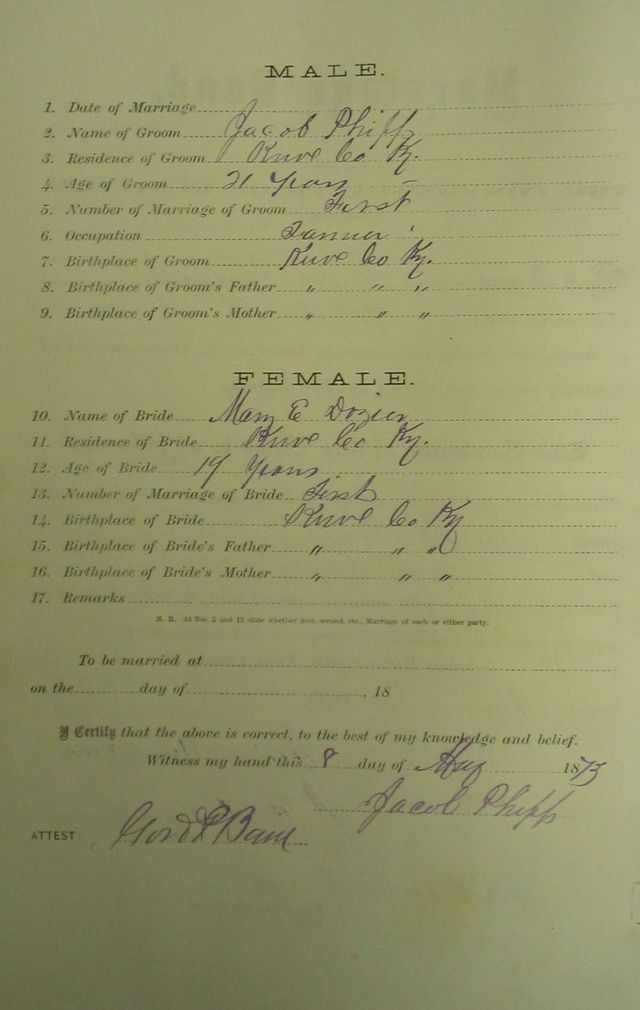 MALE.
1. Date of Marriage
2. Name of Groom Jacob Phipps
3. Residence of Groom Co Ky.
4. Age of Groom 21 Years
5. Number of Marriage of Groom First
6. Occupation Farmer
7. Birthplace of Groom Co Ky.
8. Birthplace of Groom's Father " " "
9. Birthplace of Groom's Mother " " "
FEMALE.
10. Name of Bride Mary E Dozier
11. Residence of Bride Co Ky.
12. Age of Bride Years
13. Number of Marriage of Bride First
14. Birthplace of Bride Co Ky
15. Birthplace of Bride's Father " " "
16. Birthplace of Bride's Mother " " "
17. Remarks
N. B. At Nos. 5 and 13 state whether first, second, etc., Marriage of each or either party.
To be married at
on the day of , 18
I Certify that the above is correct, to the best of my knowledge and belief.
Witness my hand this 8 day of May 1873
Jacob Phipps
ATTEST